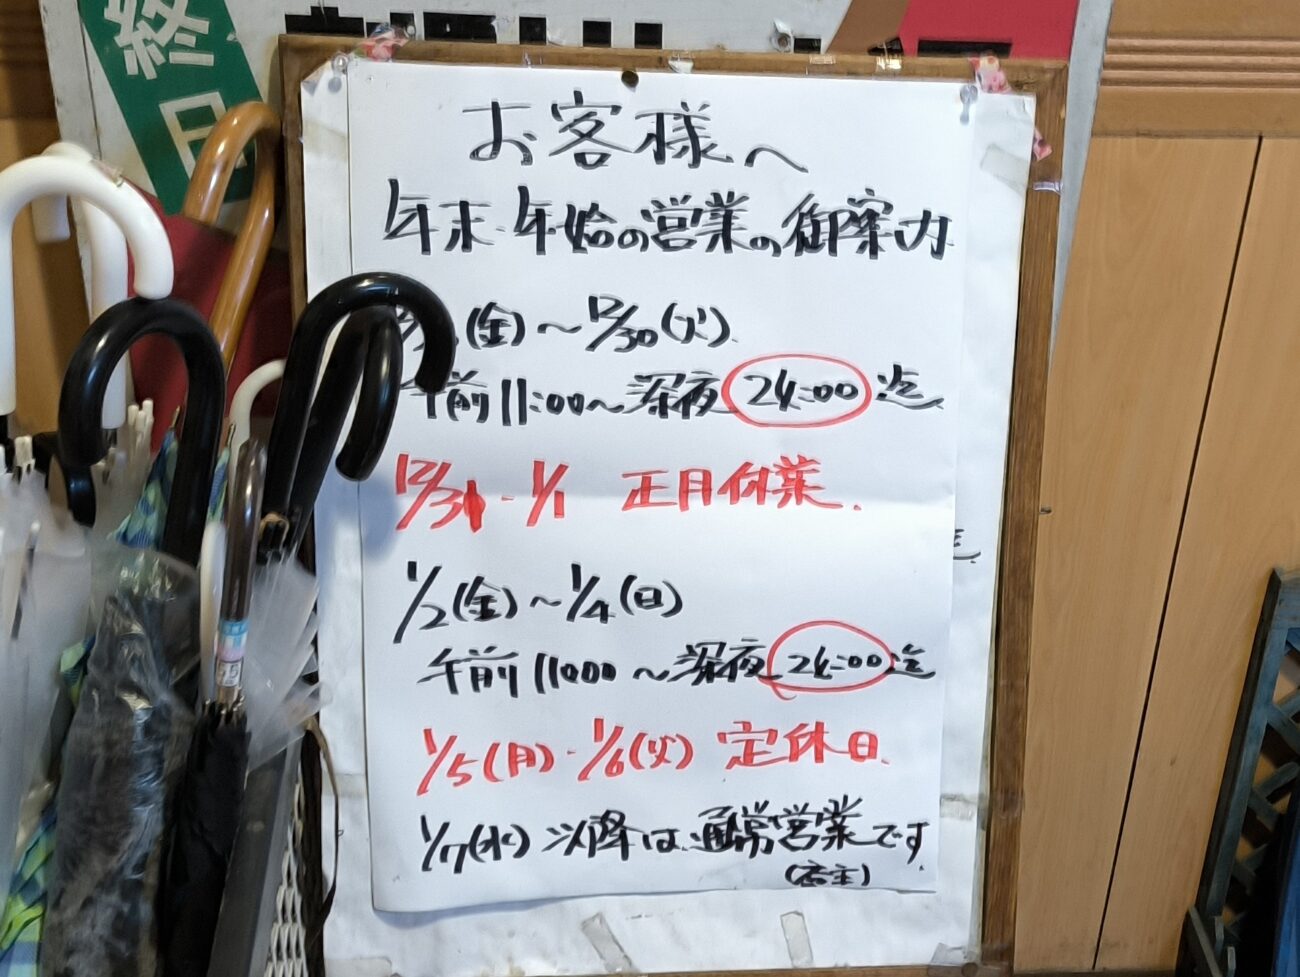 終日
お客様へ
年末・年始の営業の御案内
(金)～12/30(火)
午前11:00～深夜24:00迄
12/31・1/1 正月休業.
1/2(金)～1/4(日)
午前11:00～深夜24:00迄
1/5(月)・1/6(火) 定休日.
1/7(水)以降は通常営業です.
(店主)